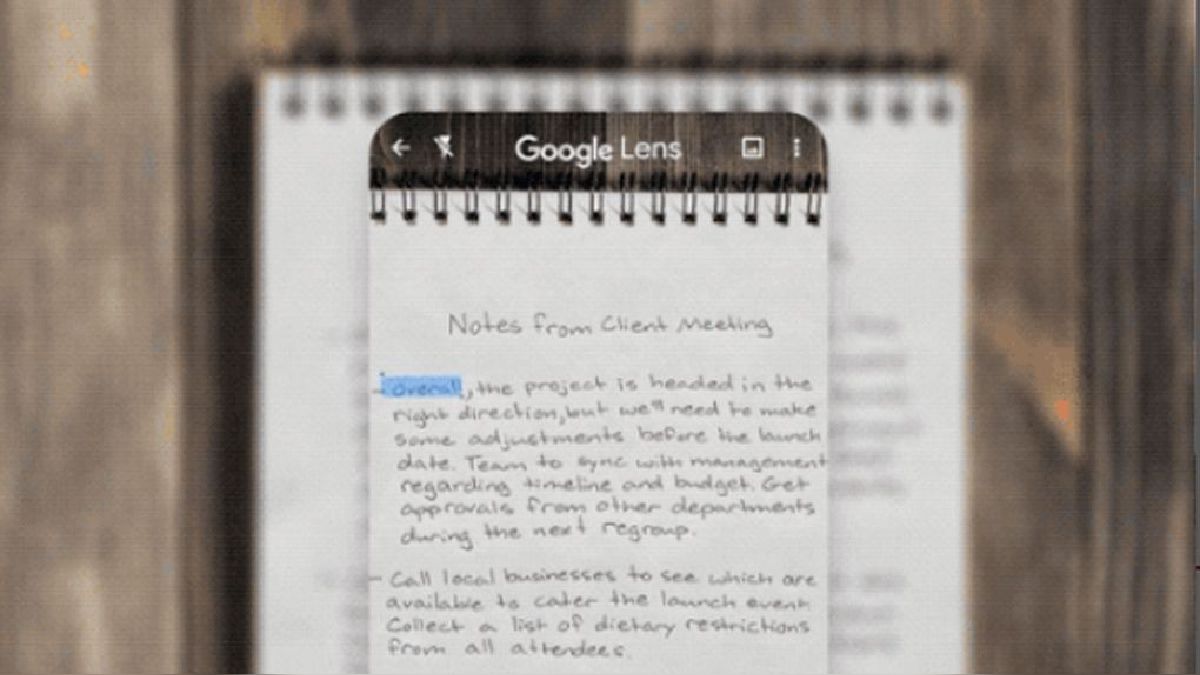 Google Lens
Notes from Client Meeting
- Overall, the project is headed in the
right direction, but we'll need to make
some adjustments before the launch
date. Team to sync with management
regarding timeline and budget. Get
approvals from other departments
during the next regroup.
- Call local businesses to see which are
available to cater the launch event.
Collect a list of dietary restrictions
from all attendees.